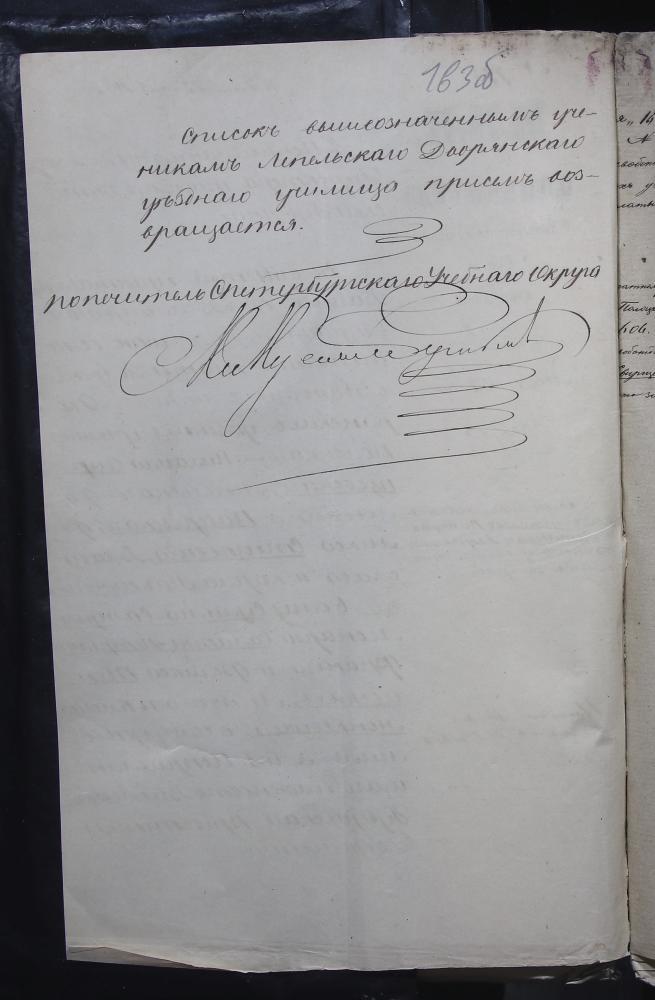 183об
Списокъ вышеозначеннымъ уче-
никамъ Лепельскаго Дворянскаго
уѣзднаго училища присемъ воз-
вращается.
Попечитель СПетербургскаго Учебнаго Округа